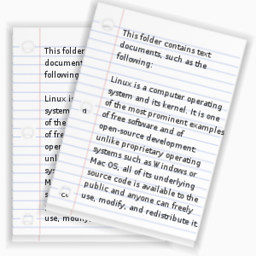 This folder
document
following
Linux is
system
of the
of free
open
unl
sys
M
s
use, modify,
This folder contains text
documents, such as the
following:
Linux is a computer operating
system and its kernel. It is one
of the most prominent examples
of free software and of
open-source development:
unlike proprietary operating
systems such as Windows or
Mac OS, all of its underlying
source code is available to the
public and anyone can freely
use, modify, and redistribute it.